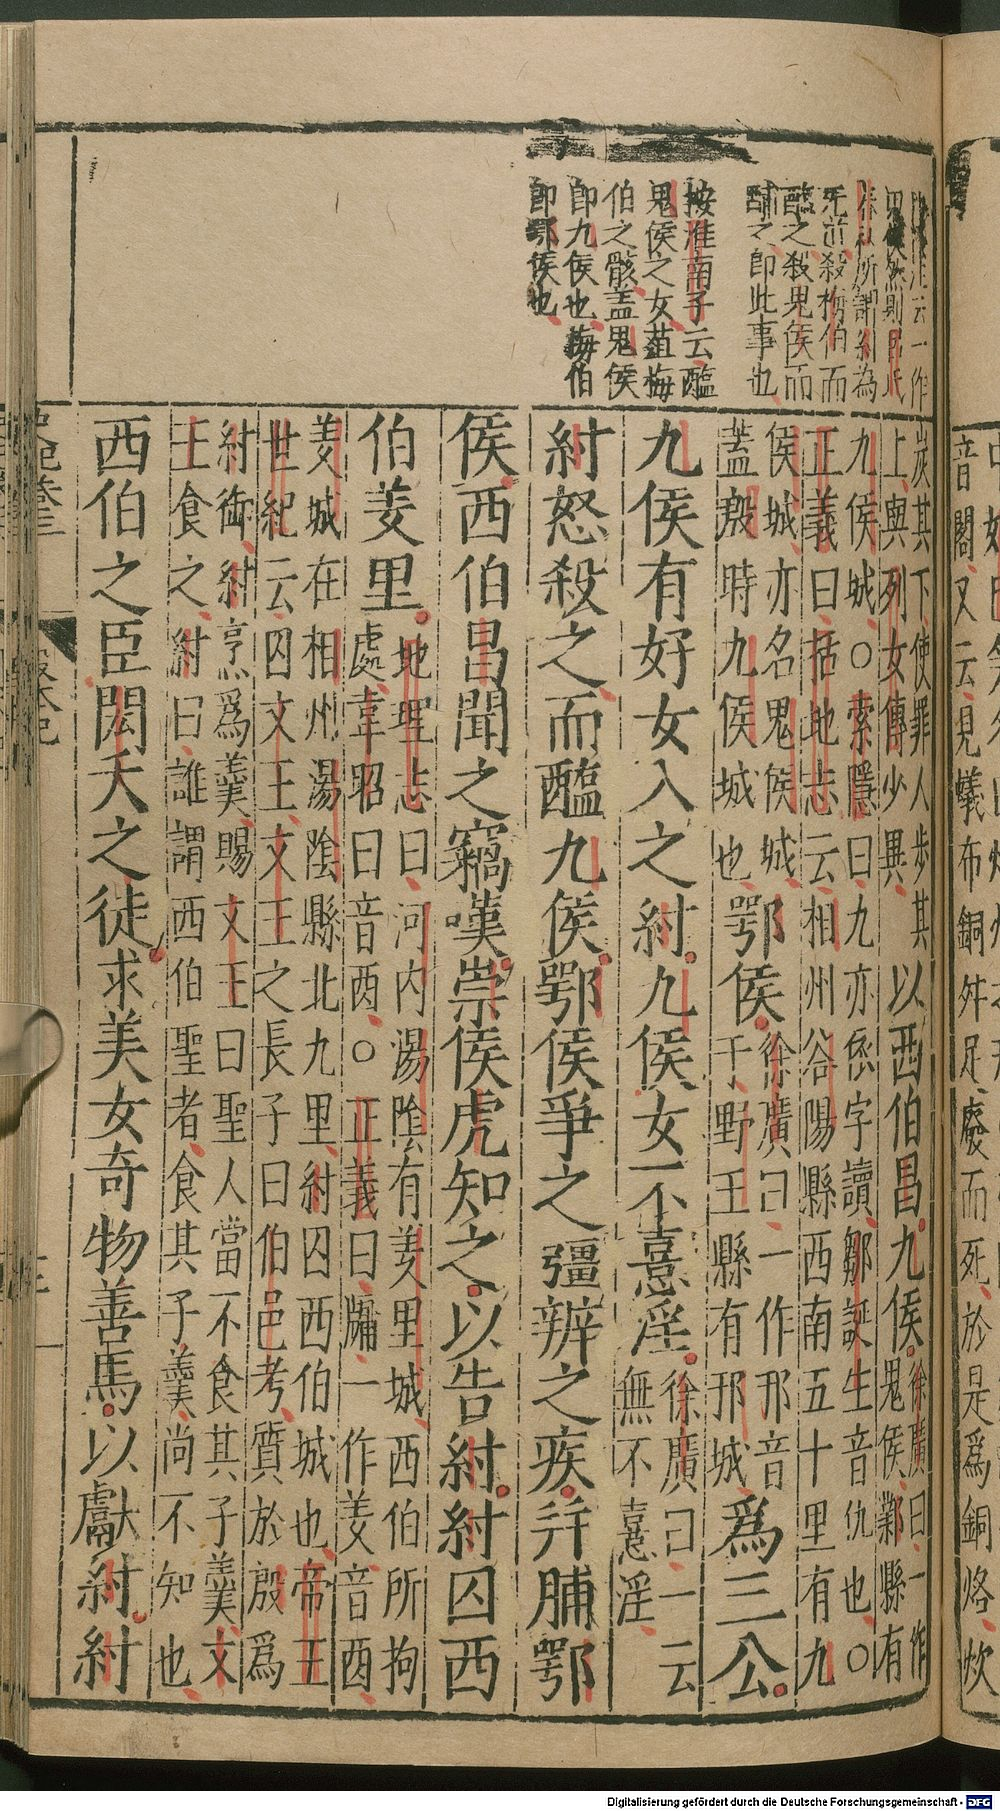 音閣又云見蟻布銅斗足廢而死於是爲銅烙炊
云一作
所謂紂為
无道殺梅伯而
醢之殺鬼侯而
脯之即此事也
按淮南子云醢
鬼侯之女葅梅
伯之骸盖鬼侯
即九侯也梅伯
即鄂侯也
炭其下使罪人步其
上與列女傳少異
以西伯昌九侯
徐廣曰一作
鬼侯鄴縣有
九侯城○索隱曰九亦依字讀鄒誕生音仇也○
正義曰括地志云相州谷陽縣西南五十里有九
侯城亦名鬼侯城
蓋殷時九侯城也
鄂侯
徐廣曰一作邘音
于野王縣有邘城
爲三公
九侯有好女入之紂九侯女不憙淫
徐廣曰一云
無不憙淫
紂怒殺之而醢九侯鄂侯爭之彊辨之疾并脯鄂
侯西伯昌聞之竊嘆崇侯虎知之以告紂紂囚西
伯羑里
地理志曰河内湯隂有羑里城西伯所拘
處韋昭曰音酉○正義曰牖一作羑音酉
羑城在相州湯隂縣北九里紂囚西伯城也帝王
世紀云囚文王文王之長子曰伯邑考質於殷爲
紂御紂烹爲羹賜文王曰聖人當不食其子羹文
王食之紂曰誰謂西伯聖者食其子羹尚不知也
西伯之臣閎夭之徒求美女奇物善馬以獻紂紂
Digitalisierung gefördert durch die Deutsche Forschungsgemeinschaft - DFG